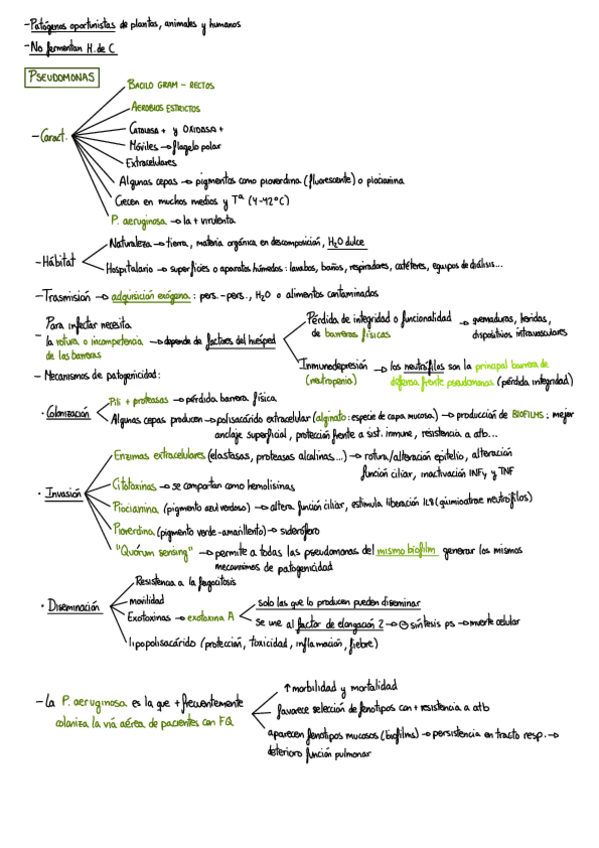 -Patógenos oportunistas de plantas, animales y humanos
-No fermentan H.de C
PSEUDOMONAS
-Caract.
BACILO GRAM - RECTOS
AEROBIOS ESTRICTOS
CATALASA + y OXIDASA +
Móviles → flagelo polar
Extracelulares
Algunas cepas → pigmentos como pioverdina (fluorescente) o piocianina
Crecen en muchos medios y Tª (4-42°C)
P. aeruginosa → la + virulenta
-Hábitat
Naturaleza → tierra, materia orgánica en descomposición, H2O dulce
Hospitalario → superficies o aparatos húmedos: lavabos, baños, respiradores, catéteres, equipos de diálisis...
-Trasmisión → adquisición exógena: pers.-pers., H2O o alimentos contaminados
- Para infectar necesita
la rotura o incompetencia → depende de factores del huésped
de las barreras
Pérdida de integridad o funcionalidad → quemaduras, heridas,
de barreras físicas dispositivos intravasculares
Inmunodepresión → los neutrófilos son la principal barrera de
(neutropenia) defensa frente pseudomonas (pérdida integridad)
- Mecanismos de patogenicidad:
· Colonización
Pili + proteasas → pérdida barrera física
Algunas cepas producen → polisacárido extracelular (alginato: especie de capa mucosa) → producción de BIOFILMS: mejor
anclaje superficial, protección frente a sist. inmune, resistencia a atb...
· Invasión
Enzimas extracelulares (elastasas, proteasas alcalinas...) → rotura/alteración epitelio, alteración
función ciliar, inactivación INFγ y TNF
Citotoxinas → se comportan como hemolisinas
Piocianina (pigmento azul verdoso) → altera función ciliar, estimula liberación IL8 (quimioatrae neutrófilos)
Pioverdina (pigmento verde-amarillento) → sideróforo
"Quórum sensing" → permite a todas las pseudomonas del mismo biofilm generar los mismos
mecanismos de patogenicidad
· Diseminación
Resistencia a la fagocitosis
movilidad
Exotoxinas → exotoxina A
solo las que lo producen pueden diseminar
se une al factor de elongación 2 → ⊖ síntesis ps → muerte celular
lipopolisacárido (protección, toxicidad, inflamación, fiebre)
-La P. aeruginosa es la que + frecuentemente
coloniza la vía aérea de pacientes con FQ
↑ morbilidad y mortalidad
favorece selección de fenotipos con + resistencia a atb
aparecen fenotipos mucosos (biofilms) → persistencia en tracto resp. →
deterioro función pulmonar